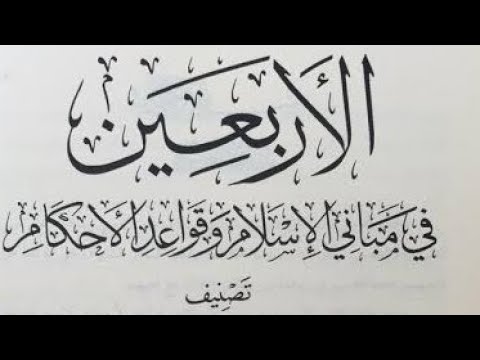 الأَرْبَعِين
فِي مَبَانِي الإِسْلَامِ وَقَوَاعِدِ الأَحْكَامِ
تَصْنِيف